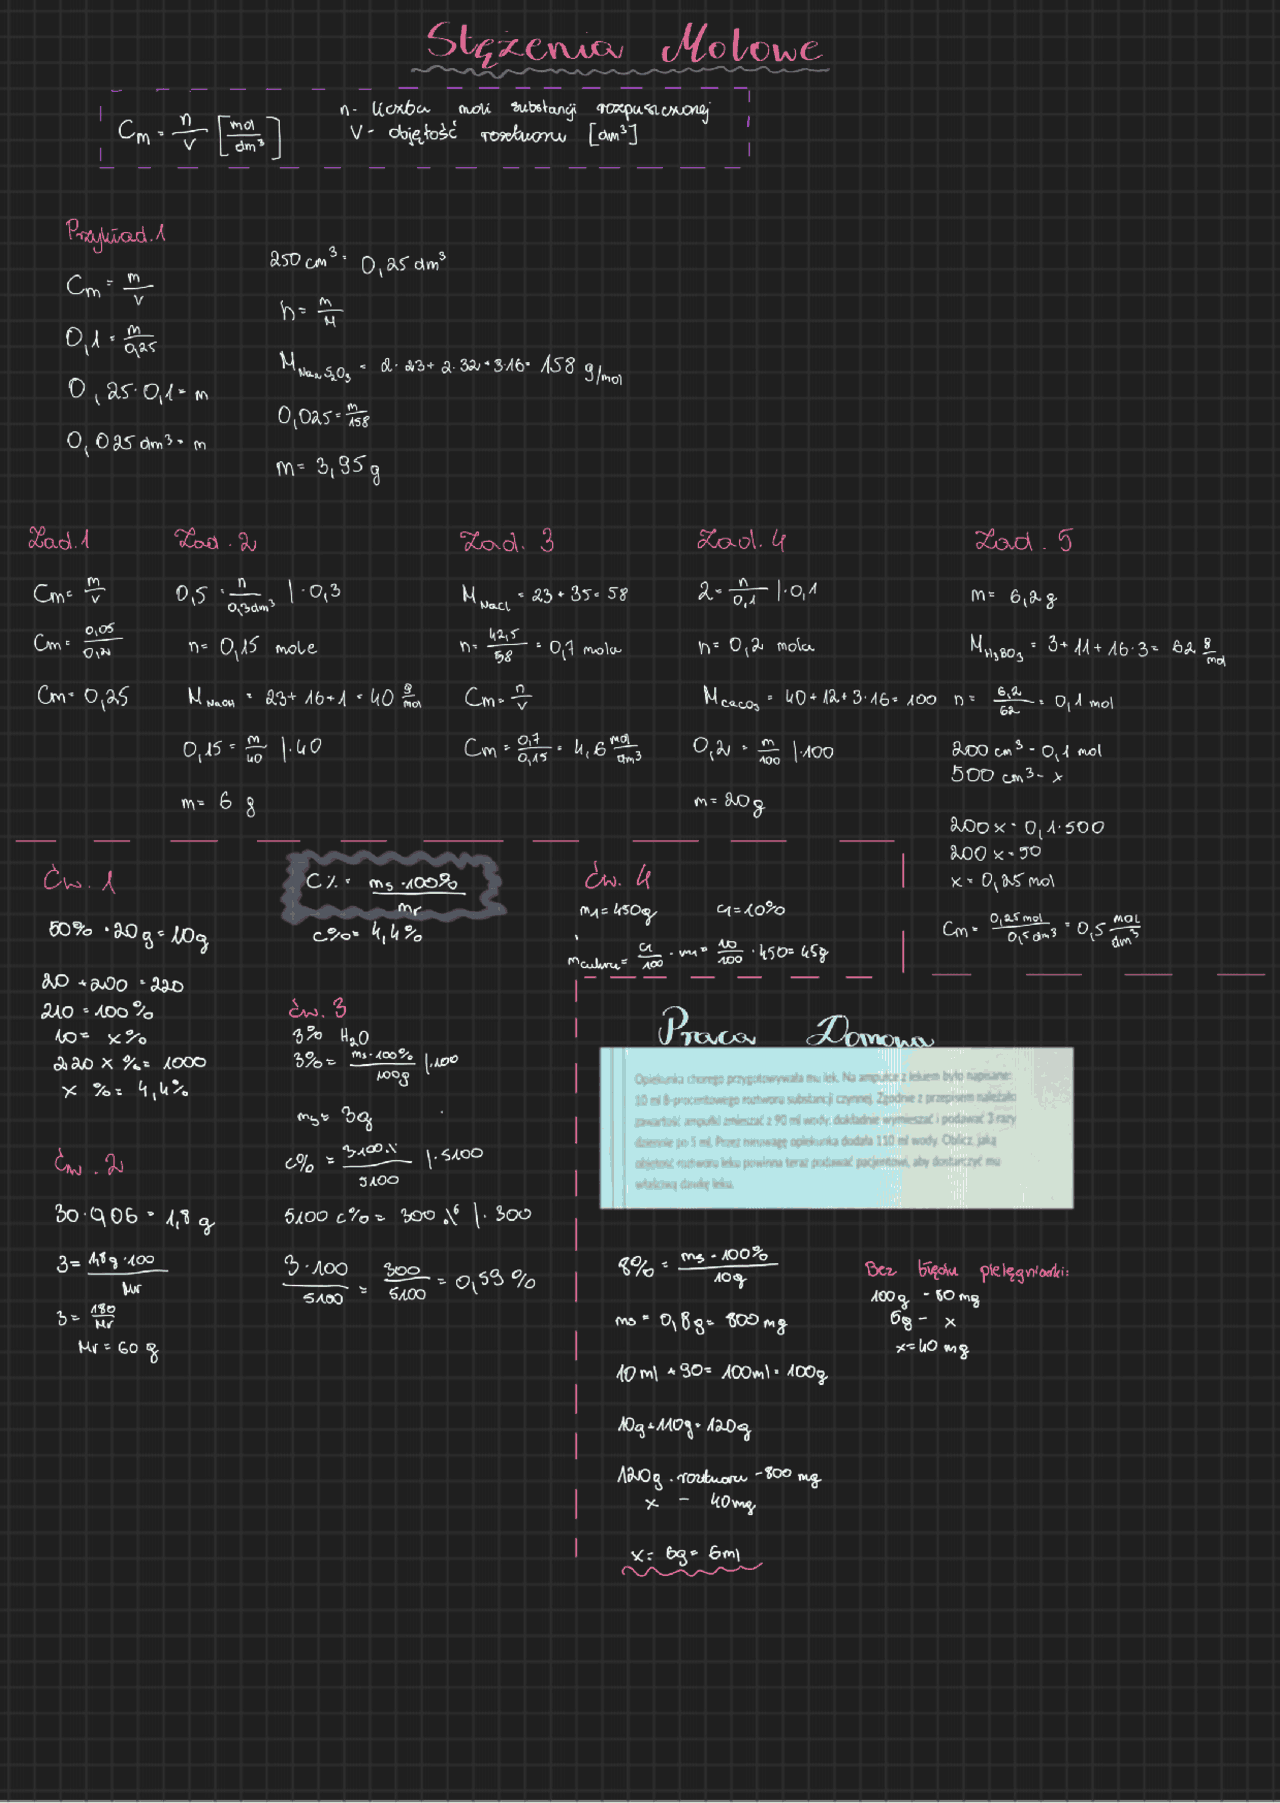 Stężenia Molowe
Cm = n/V [mol/dm³]
n - liczba moli substancji rozpuszczonej
V - objętość roztworu [dm³]
Przykład.1
Cm = m/V
0,1 = m/0,25
0,25·0,1 = m
0,025 dm³ = m
250 cm³ = 0,25 dm³
n = m/M
M Na₂S₂O₃ = 2·23+2·32+3·16= 158 g/mol
0,025 = m/158
m = 3,95 g
Zad.1
Cm = m/V
Cm = 0,05/0,2
Cm = 0,25
Zad.2
0,5 = n/0,3dm³ |·0,3
n = 0,15 mole
M NaOH = 23+16+1=40 g/mol
0,15 = m/40 |·40
m = 6 g
Zad. 3
M NaCl = 23+35=58
n = 42,5/58 = 0,7 mola
Cm = n/V
Cm = 0,7/0,15 = 4,6 mol/dm³
Zad.4
2 = n/0,1 |·0,1
n = 0,2 mola
M CaCO₃ = 40+12+3·16=100
0,2 = m/100 |·100
m = 20g
Zad. 5
m = 6,2g
M H₃BO₃ = 3+11+16·3= 62 g/mol
n = 6,2/62 = 0,1 mol
200 cm³ - 0,1 mol
500 cm³ - x
200x = 0,1·500
200x = 50
x = 0,25 mol
Cm = 0,25 mol/0,5 dm³ = 0,5 mol/dm³
Ćw. 1
50% · 20g = 10g
20 + 200 = 220
210 = 100%
10 = x%
220 x % = 1000
x % = 4,4%
C% = ms·100%/mr
c% = 4,4%
Ćw. 2
30·0,06 = 1,8 g
3 = 1,8g·100/Mr
3 = 180/Mr
Mr = 60 g
Ćw. 3
3% H₂O
3% = ms·100%/100g |·100
ms = 3g
c% = 3·100%/5100 |·5100
5100 c% = 300 % |·300
3·100/5100 = 300/5100 = 0,59 %
Ćw. 4
m₁=450g c₁=10%
m cukru = c₁/100 · m₁ = 10/100 · 450 = 45g
Praca Domowa
Opiekunka chorego przygotowywała mu lek. Na ampułce z lekiem było napisane:
10 ml 8-procentowego roztworu substancji czynnej. Zgodnie z przepisem należało
zawartość ampułki zmieszać z 90 ml wody, dokładnie wymieszać i podawać 3 razy
dziennie po 5 ml. Przez nieuwagę opiekunka dodała 110 ml wody. Oblicz, jaką
objętość roztworu leku powinna teraz podawać pacjentowi, aby dostarczyć mu
właściwą dawkę leku.
8% = ms·100%/10g
ms = 0,8g = 800 mg
10 ml + 90 = 100ml = 100g
10g+110g=120g
120g roztworu - 800 mg
x - 40mg
x = 6g = 6ml
Bez błędu pielęgniarki:
100g - 80 mg
5g - x
x=40 mg